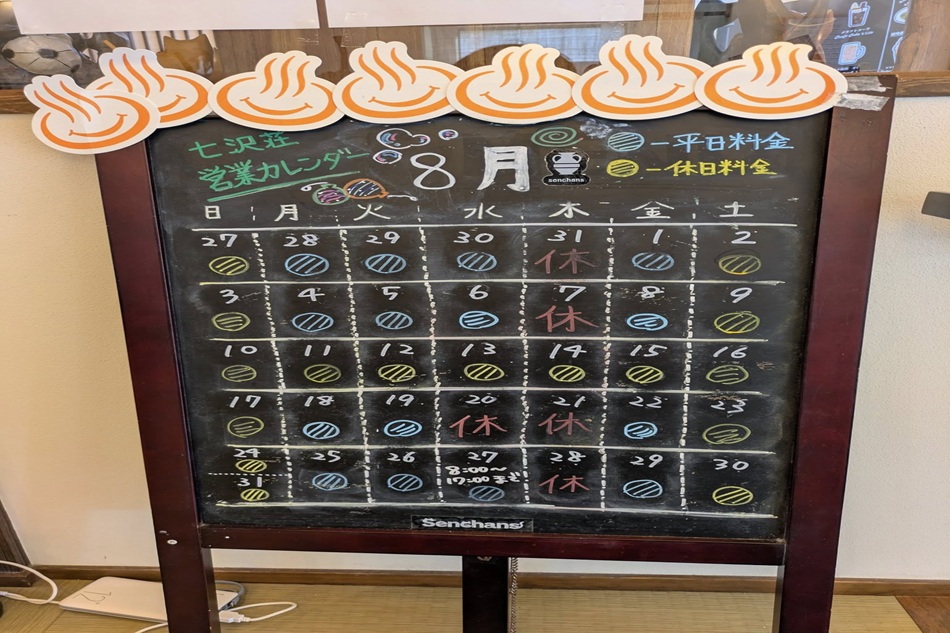 七沢荘
営業カレンダー
8月
senchans
-平日料金
-休日料金
日 月 火 水 木 金 土
27 28 29 30 31 1 2
休
3 4 5 6 7 8 9
休
10 11 12 13 14 15 16
17 18 19 20 21 22 23
休 休
24 25 26 27 28 29 30
8:00〜
17:00まで
31 休
Senchans